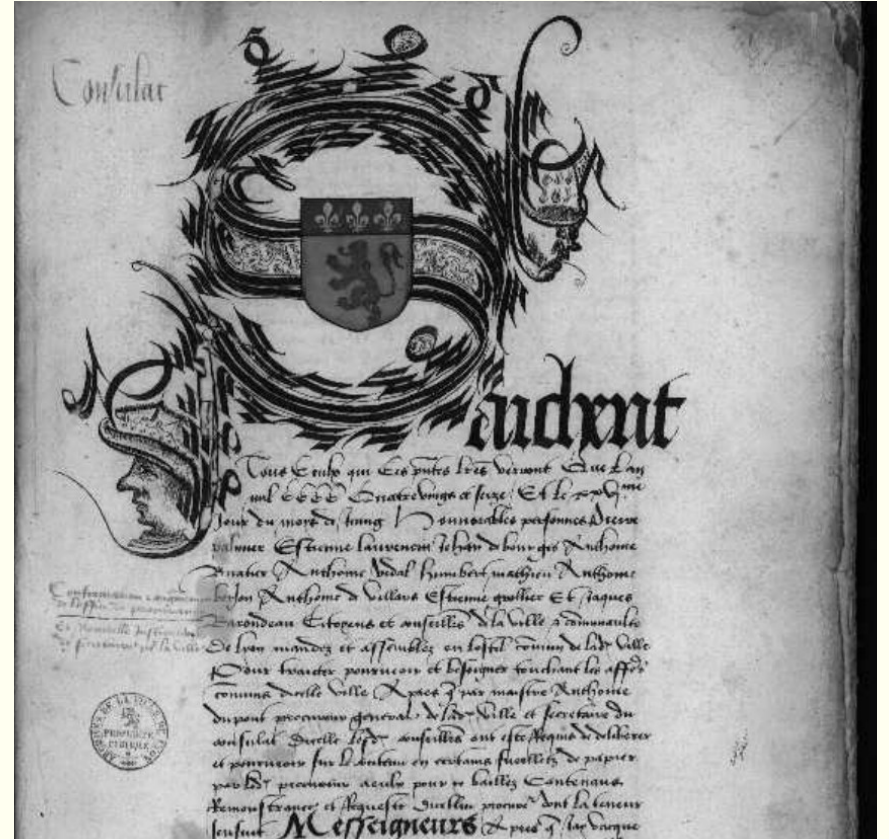 Consulat
Sachent
Tous ceulx qui ces pntes lres verront Que lan
mil CCCC quatrevings et seize Et le xxvjme
Jour du moys de Juing Honnorables personnes Pierre
palmier Estienne laurencin Jehan de bourges Anthoine
Anthoine vidal humbert mathieu Anthoine
berjon Anthoine de villars Estienne grollier Et Jaques
Barondeau Citoyens et conseilles de la ville & communaulte
De lyon mandez et assemblez en lostel comun de lad ville
Pour traicter pourveoir et besoigner touchant les affes
comuns dicelle ville Apres q par maistre Anthoine
dupont procureur general de lad ville et secretaire du
consulat dicelle lesd conseilles ont este Requis de deliberer
et pourveoir sur le contenu en certains fueilletz de papier
par led procureur a ceulx pour ce baillez Contenans
Remonstrances et Requeste dicelluy procure dont la teneur
sensuit Messeigneurs Apres q
Confirmation
de loffice de procureur
Et nouvelle
de procureur de la ville
ARCHIVES DE LA VILLE DE LYON
PROPRIETE
PUBLIQUE